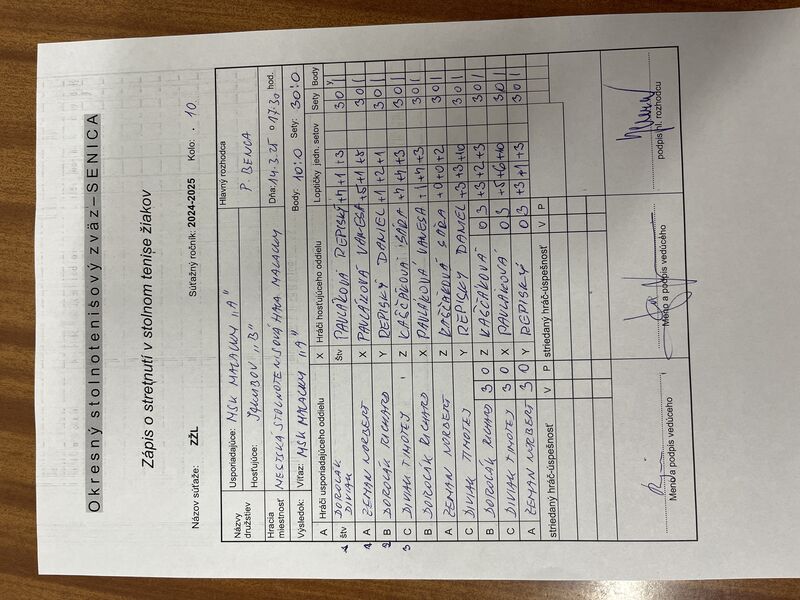 Okresný stolnotenišový zväz–SENICA
Zápis o stretnutí v stolnom tenise žiakov
Názov súťaže: ZŽL Súťažný ročník: 2024-2025 Kolo: . 10
Názvy družstiev Usporiadajúce: MSK MALACKY "A" Hlavný rozhodca
Hosťujúce: JAKUBOV "B" P. BENCA
Hracia miestnosť MESTSKÁ STOLNOTENISOVÁ HALA MALACKY Dňa: 14.3.25 o 17:30 hod.
Výsledok: Víťaz: MSK MALACKY "A" Body: 10:0 Sety: 30:0
A Hráči usporiadajúceho oddielu X Hráči hosťujúceho oddielu Loptičky jedn. setov Sety Body
štv DOROČÁK DIVIAK štv PAVLÁKOVÁ REPISKÝ +7+1+3 3 0 1
A ZEMAN NORBERT X PAVLÁKOVÁ VANESA +5+1+8 3 0 1
B DOROČÁK RICHARD Y REPISKÝ DANIEL +1+2+1 3 0 1
C DIVIAK TIMOTEJ Z KAŠČÁKOVÁ SÁRA +7+4+3 3 0 1
B DOROČÁK RICHARD X PAVLÁKOVÁ VANESA +1+7+3 3 0 1
A ZEMAN NORBERT Z KAŠČÁKOVÁ SÁRA +0+0+2 3 0 1
C DIVIAK TIMOTEJ Y REPISKÝ DANIEL +3+3+10 3 0 1
B DOROČÁK RICHARD 3 0 Z KAŠČÁKOVÁ 0 3 +3+2+3 3 0 1
C DIVIAK TIMOTEJ 3 0 X PAVLÁKOVÁ 0 3 +5+6+10 3 0 1
A ZEMAN NORBERT 3 0 Y REPISKÝ 0 3 +3+1+3 3 0 1
striedaný hráč-úspešnosť V P striedaný hráč-úspešnosť V P
Meno a podpis vedúceho Meno a podpis vedúceho podpis hl. rozhodcu